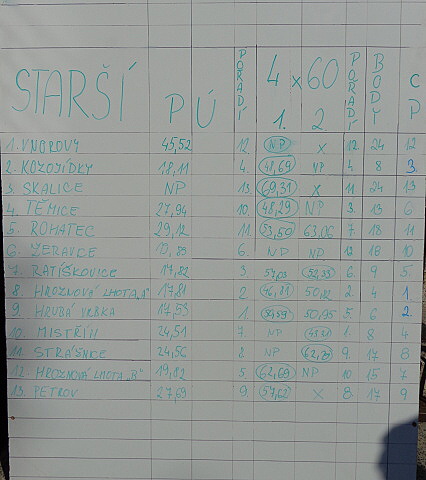 STARŠÍ PÚ POŘADÍ 4 x 60 POŘADÍ BODY CP
1. 2.
1. VNOROVY 45,52 12. NP X 12. 24 12
2. KOZOJÍDKY 18,11 4. 48,69 NP 4. 8 3
3. SKALICE NP 13 69,31 X 11 24 13
4. TĚMICE 27,94 10. 48,29 NP 3. 13 6
5. ROHATEC 29,12 11 53,50 63,06 7 18 11
6. ŽERAVICE 6. NP NP 12 18 10
7. RATÍŠKOVICE 17,82 3 57,03 6 9 5
8. HROZNOVÁ LHOTA „A" 17,81 2. 46,81 50,12 2. 4 1
9. HRUBÁ VRBKA 17,53 1. 50,95 5 6 2
10. MISTŘÍN 24,51 7. NP 1. 8 4
11. STRÁŽNICE 24,56 8 NP 9. 17 8
12. HROZNOVÁ LHOTA „B" 19,12 5 62,69 NP 10 15 7
13. PETROV 27,69 9 57,62 X 8 17 9